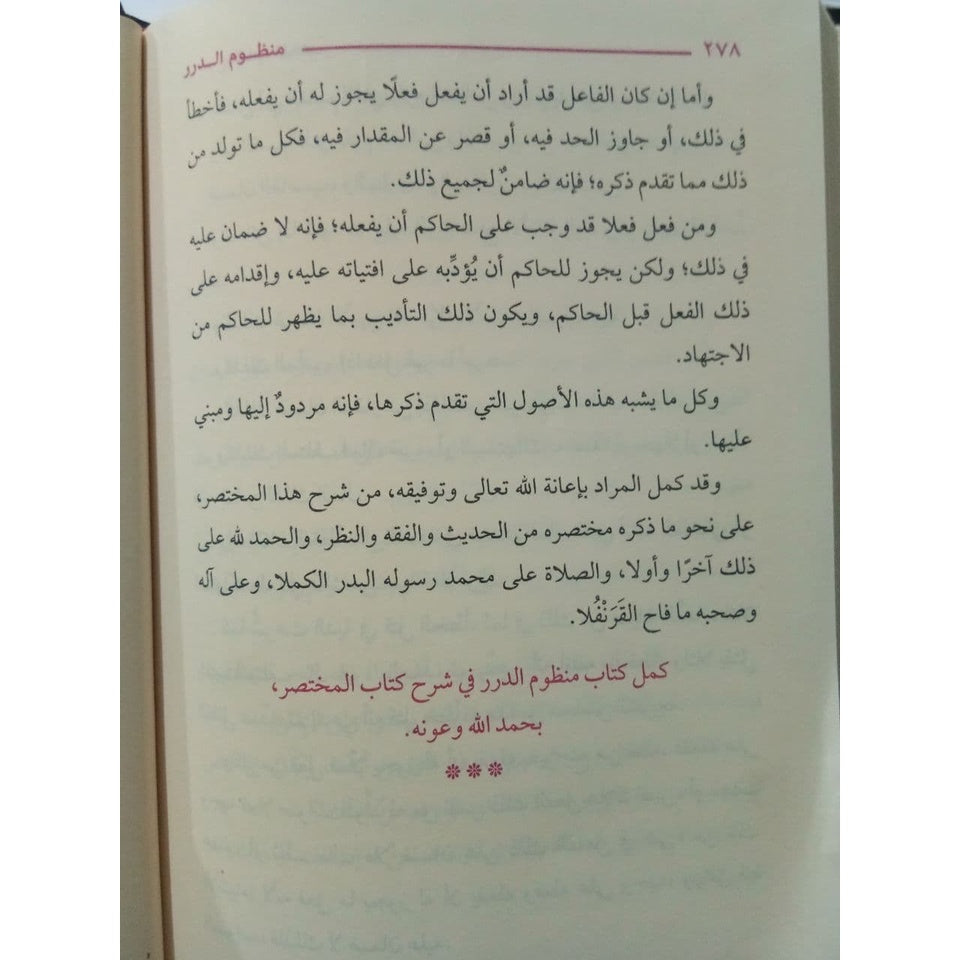 ٢٧٨ منظوم الدرر
وأما إن كان الفاعل قد أراد أن يفعل فعلًا يجوز له أن يفعله، فأخطأ
في ذلك، أو جاوز الحد فيه، أو قصر عن المقدار فيه، فكل ما تولد من
ذلك مما تقدم ذكره؛ فإنه ضامنٌ لجميع ذلك.
ومن فعل فعلا قد وجب على الحاكم أن يفعله؛ فإنه لا ضمان عليه
في ذلك؛ ولكن يجوز للحاكم أن يُؤدِّبه على افتياته عليه، وإقدامه على
ذلك الفعل قبل الحاكم، ويكون ذلك التأديب بما يظهر للحاكم من
الاجتهاد.
وكل ما يشبه هذه الأصول التي تقدم ذكرها، فإنه مردودٌ إليها ومبني
عليها.
وقد كمل المراد بإعانة الله تعالى وتوفيقه، من شرح هذا المختصر،
على نحو ما ذكره مختصره من الحديث والفقه والنظر، والحمد لله على
ذلك آخرًا وأولا، والصلاة على محمد رسوله البدر الكملا، وعلى آله
وصحبه ما فاح القَرَنْفُلا.
كمل كتاب منظوم الدرر في شرح كتاب المختصر،
بحمد الله وعونه.
***